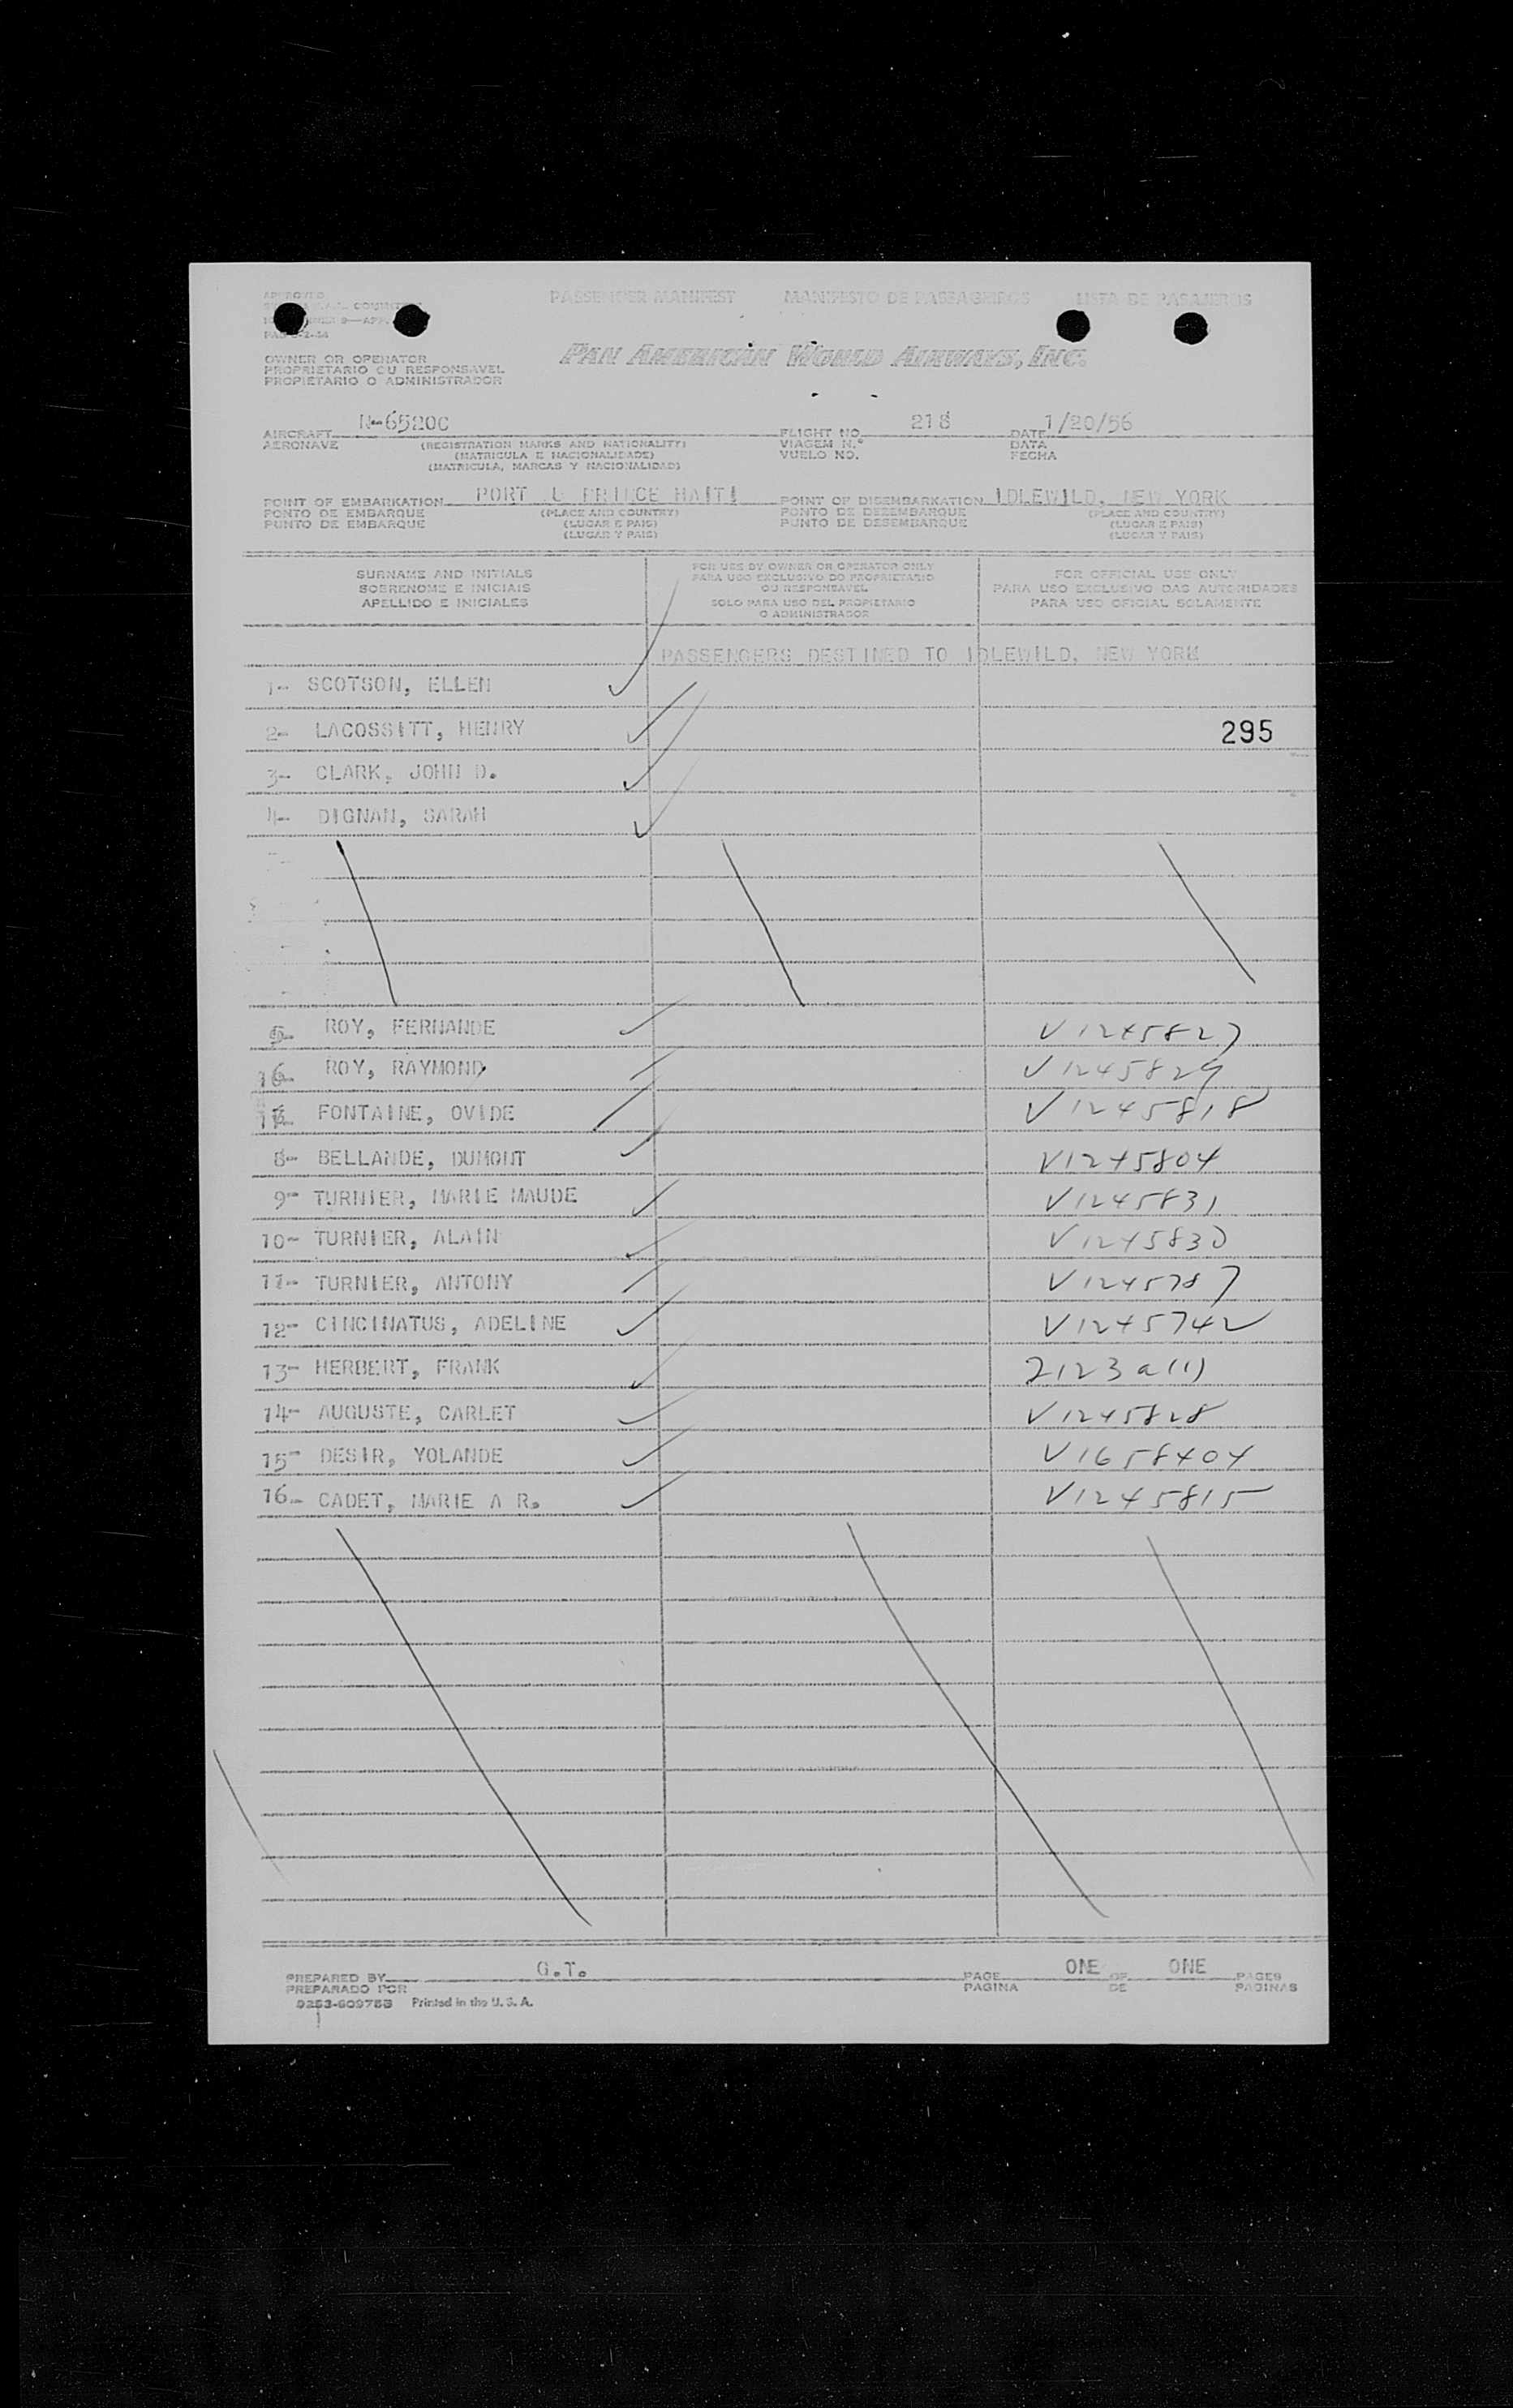 APPROVED
PASSENGER MANIFEST MANIFESTO DE PASSAGEIROS LISTA DE PASAJEROS
OWNER OR OPERATOR
PROPRIETARIO OU RESPONSAVEL
PROPIETARIO O ADMINISTRADOR
PAN AMERICAN WORLD AIRWAYS, INC.
AIRCRAFT N-6520C FLIGHT NO. 218 DATE 1/20/56
AERONAVE (REGISTRATION MARKS AND NATIONALITY) VIAGEM N.º DATA
(MATRICULA E NACIONALIDADE) VUELO NO. FECHA
(MATRICULA, MARCAS Y NACIONALIDAD)
POINT OF EMBARKATION PORT U PRINCE HAITI POINT OF DISEMBARKATION IDLEWILD, NEW YORK
PONTO DE EMBARQUE (PLACE AND COUNTRY) PONTO DE DESEMBARQUE (PLACE AND COUNTRY)
PUNTO DE EMBARQUE (LUGAR E PAIS) PUNTO DE DESEMBARQUE (LUGAR E PAIS)
(LUGAR Y PAIS) (LUGAR Y PAIS)
SURNAME AND INITIALS FOR USE BY OWNER OR OPERATOR ONLY FOR OFFICIAL USE ONLY
SOBRENOME E INICIAIS PARA USO EXCLUSIVO DO PROPRIETARIO OU RESPONSAVEL PARA USO EXCLUSIVO DAS AUTORIDADES
APELLIDO E INICIALES SOLO PARA USO DEL PROPIETARIO O ADMINISTRADOR PARA USO OFICIAL SOLAMENTE
PASSENGERS DESTINED TO IDLEWILD, NEW YORK
1- SCOTSON, ELLEN
2- LACOSSITT, HENRY 295
3- CLARK, JOHN D.
4- DIGNAN, SARAH
5- ROY, FERNANDE V1245827
16- ROY, RAYMOND V1245829
17- FONTAINE, OVIDE V1245818
8- BELLANDE, DUMONT V1245804
9- TURNIER, MARIE MAUDE V1245831
10- TURNIER, ALAIN V1245830
11- TURNIER, ANTONY V1245787
12- CINCINATUS, ADELINE V1245742
13- HERBERT, FRANK 2123a(1)
14- AUGUSTE, CARLET V1245828
15- DESIR, YOLANDE V1658404
16- CADET, MARIE A R. V1245815
PREPARED BY G.T. PAGE ONE OF ONE PAGES
PREPARADO POR PAGINA DE PAGINAS
9253-609758 Printed in the U. S. A.